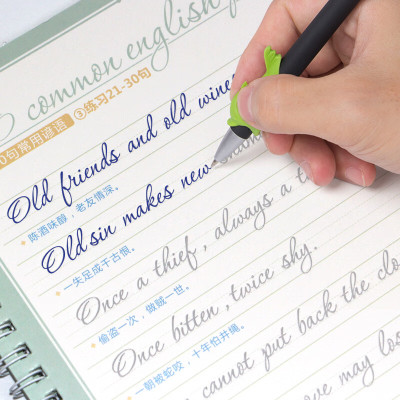 common english p
0句常用谚语 ③练习21-30句
Old friends and old wines
陈酒味醇，老友情深。
Old sin makes new sham
一失足成千古恨。
Once a thief, always a t
偷盗一次，做贼一世。
Once bitten, twice shy.
一朝被蛇咬，十年怕井绳。
cannot put back the clo
may los